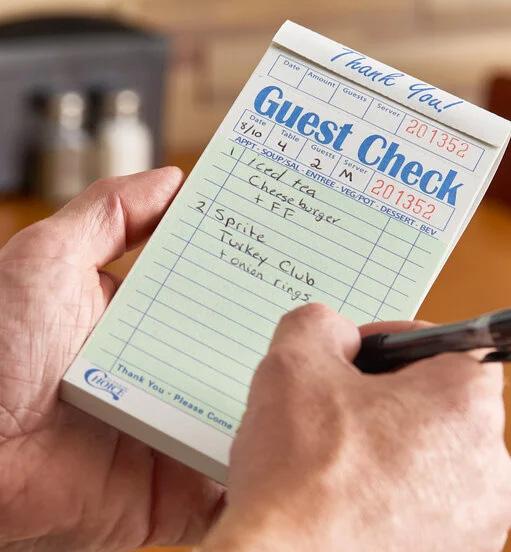 Thank You!
Date Amount Guests Server 201352
Guest Check
Date Table Guests Server
8/10 4 2 M 201352
APPT - SOUP/SAL - ENTREE - VEG/POT - DESSERT - BEV
1 Iced tea
Cheeseburger
+ FF
2 Sprite
Turkey Club
+ onion rings
Thank You - Please Come
CHOICE